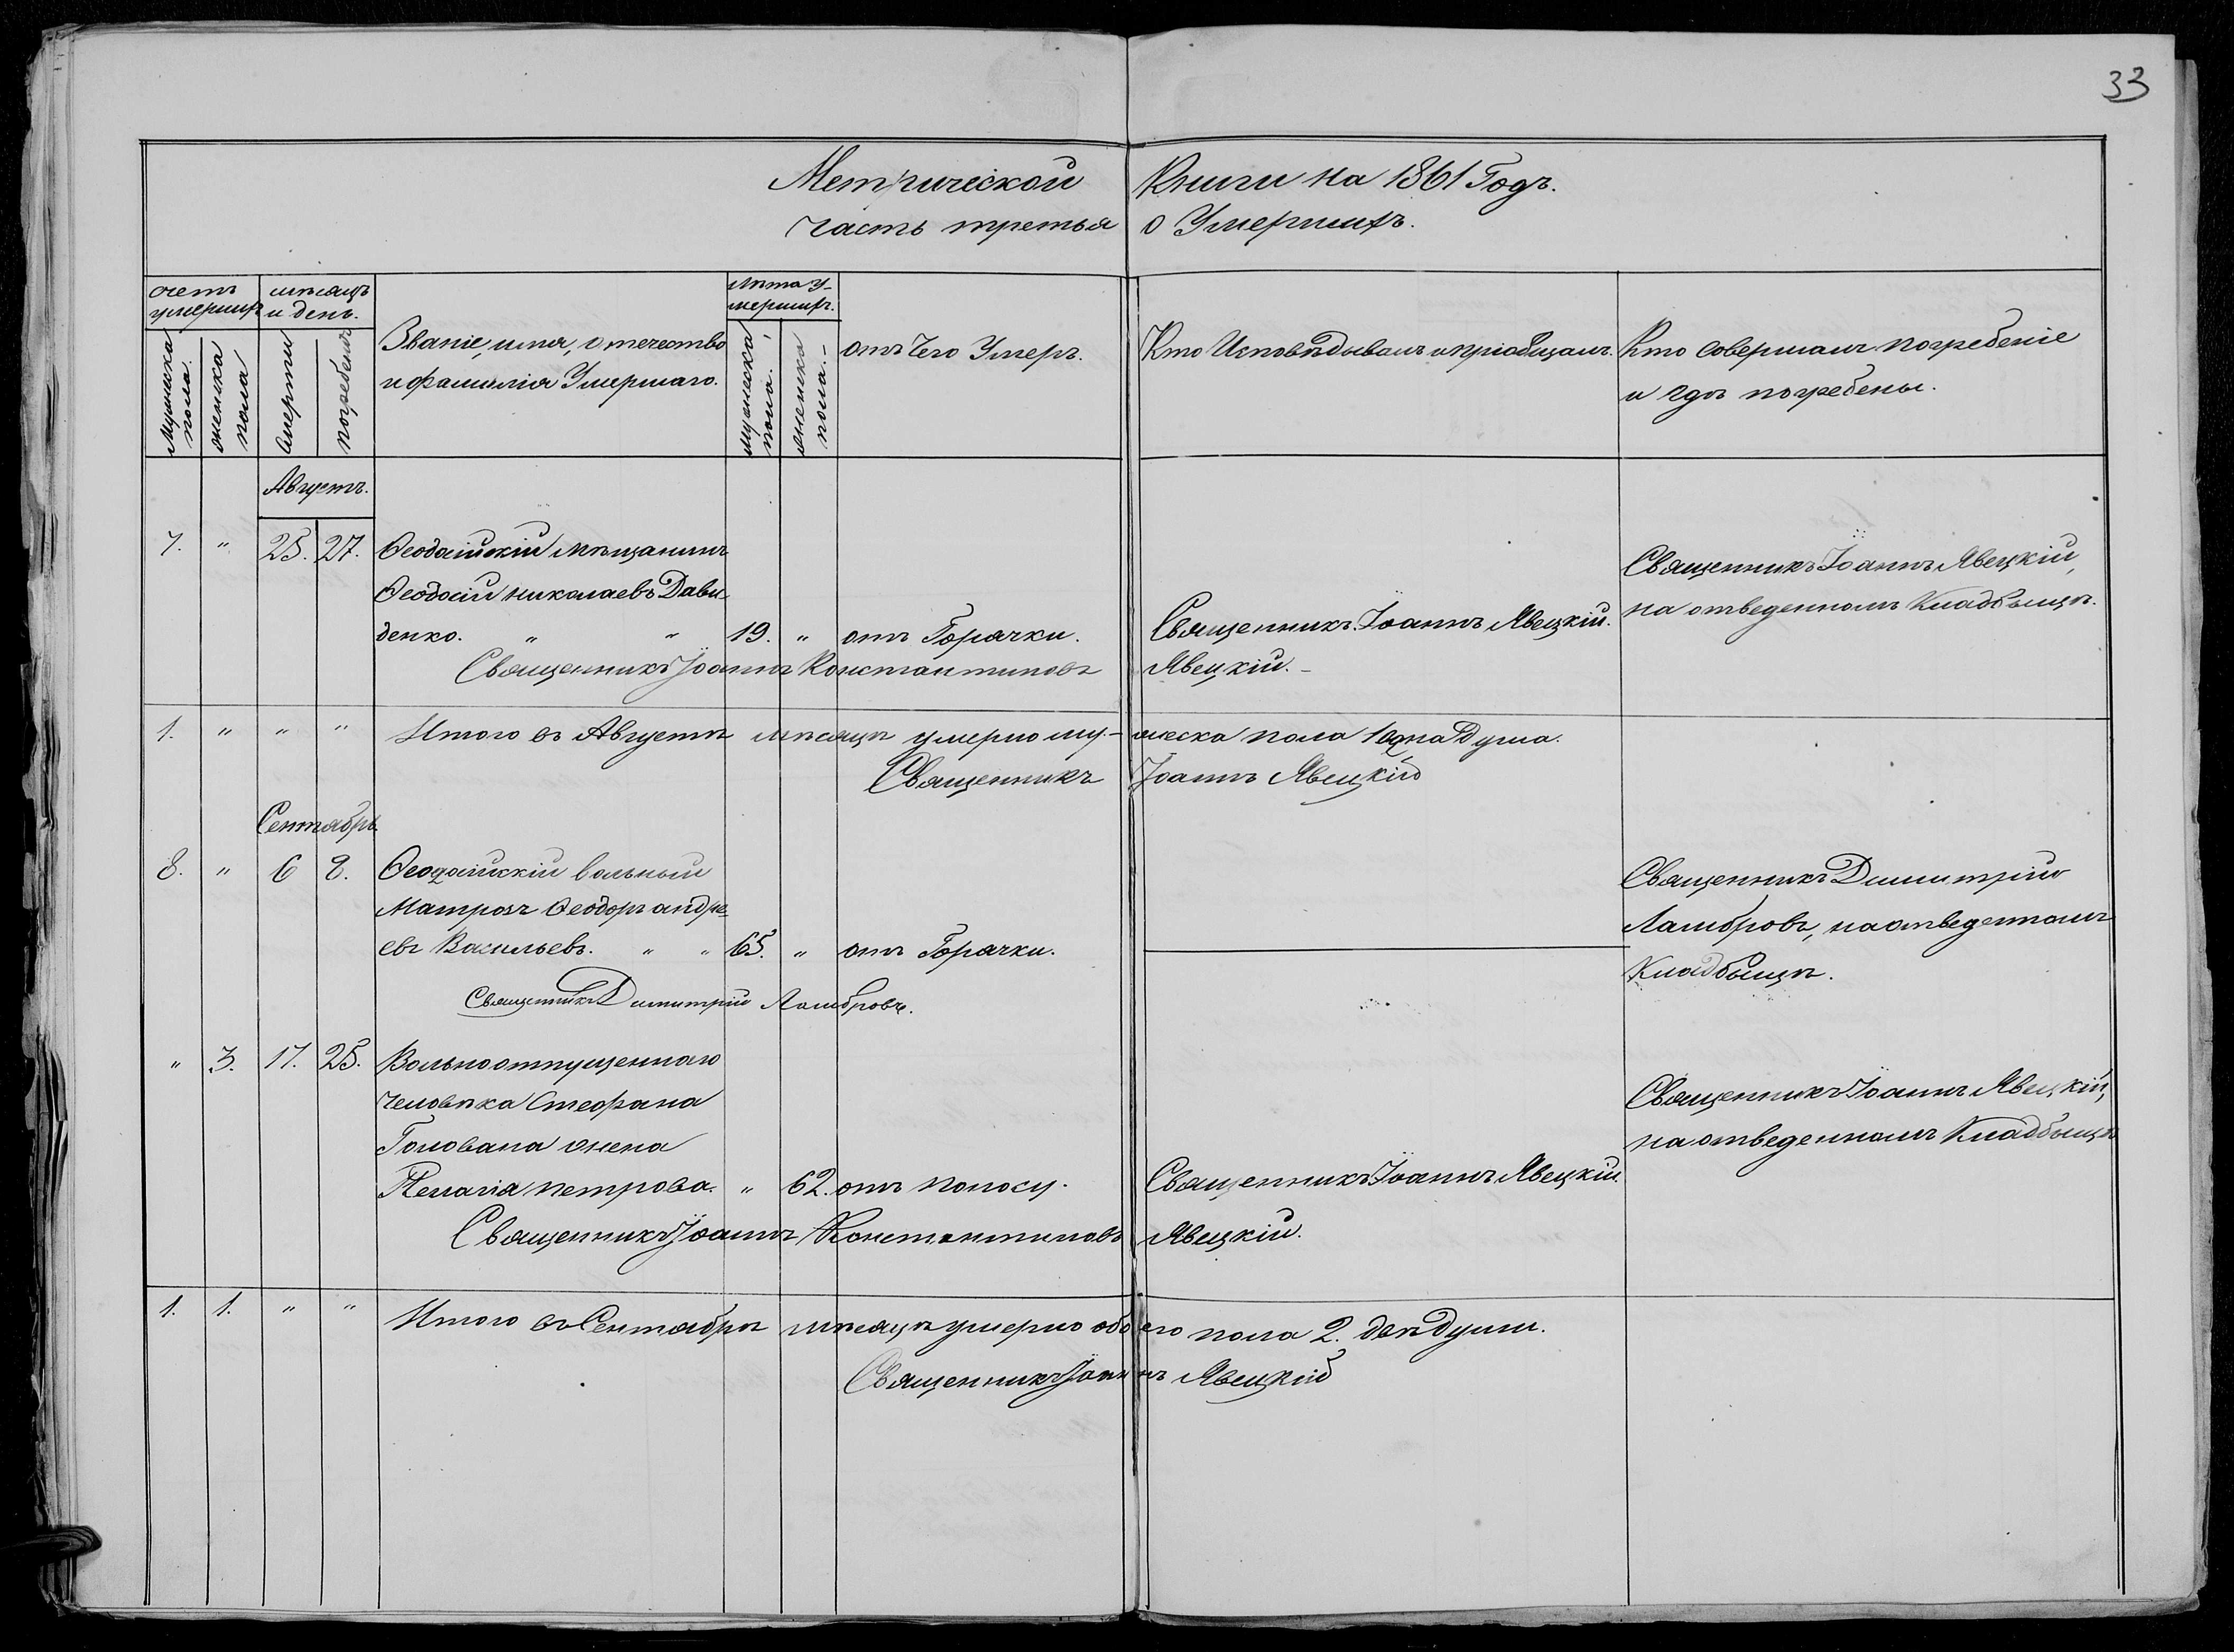 33
Метрической Книги на 1861 Годъ.
часть третья о Умершихъ.
счетъ умершихъ
мѣсяцъ и день.
Званіе, имя, отечество
и фамилія Умершаго.
лѣта У-
мершихъ.
отъ Чего Умеръ.
Кто Исповѣдывалъ и пріобщалъ.
Кто совершалъ погребеніе
и гдѣ погребены.
Мужеска пола.
женска пола
Смерти
погребенія
мужеска пола.
женска пола.
Августъ.
7. " 25. 27. Ѳеодосійскій мѣщанинъ
Ѳеодосій николаевъ Дави-
денко. " " 19. " отъ Горячки. Священникъ Іоаннъ Явецкій.
Священникъ Іоаннъ Явецкій,
на отведенномъ Кладбыщѣ.
Священникъ Іоаннъ Константиновъ Явецкій.
1. " " " Итого въ Августѣ мѣсяцѣ умерло му- жеска пола 1 одна Душа.
Священникъ Іоаннъ Явецкій
Сентябрь
8. " 6 8. Ѳеодосійскій вольный
Матрозъ Ѳеодоръ андре-
евъ Васильевъ. " " 65. " отъ Горячки.
Священникъ Димитрій
Ламбровъ, на отведенномъ
Кладбыщѣ.
Священникъ Димитрій Ламбровъ.
" 3. 17. 25. Вольноотпущеннаго
Человѣка Стефана
Голована жена
Пелагія петрова. " 62. отъ поносу. Священникъ Іоаннъ Явецкій.
Священникъ Іоаннъ Явецкій,
на отведенномъ Кладбыщѣ
Священникъ Іоаннъ Константиновъ Явецкій.
1. 1. " " Итого въ Сентябрѣ мѣсяцѣ умерло обоего пола 2. двѣ души.
Священникъ Іоаннъ Явецкій